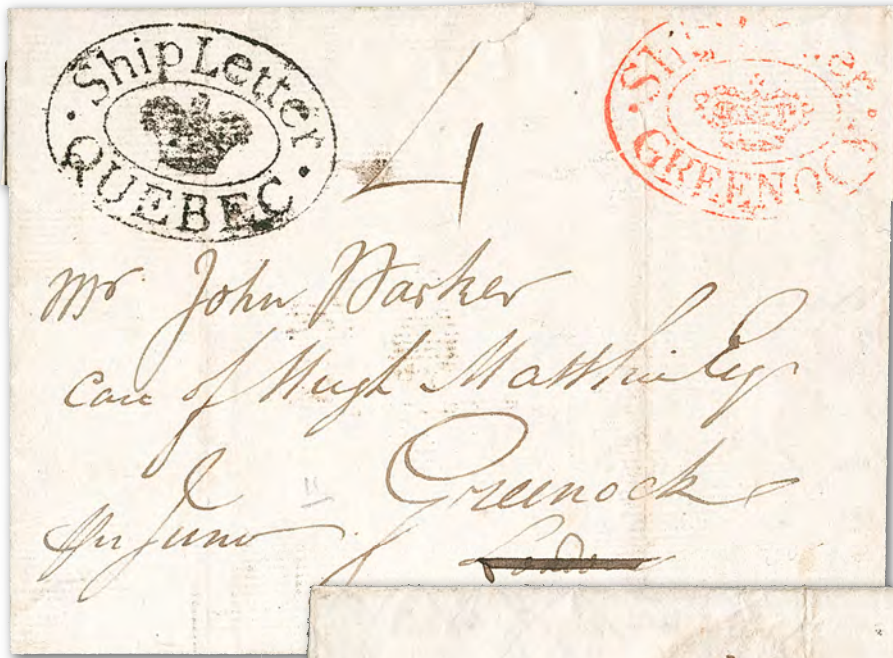 Ship Letter
QUEBEC
4
GREENOC
Mr John Parker
care of Hugh Matthie Esq
Greenock
Per Juno